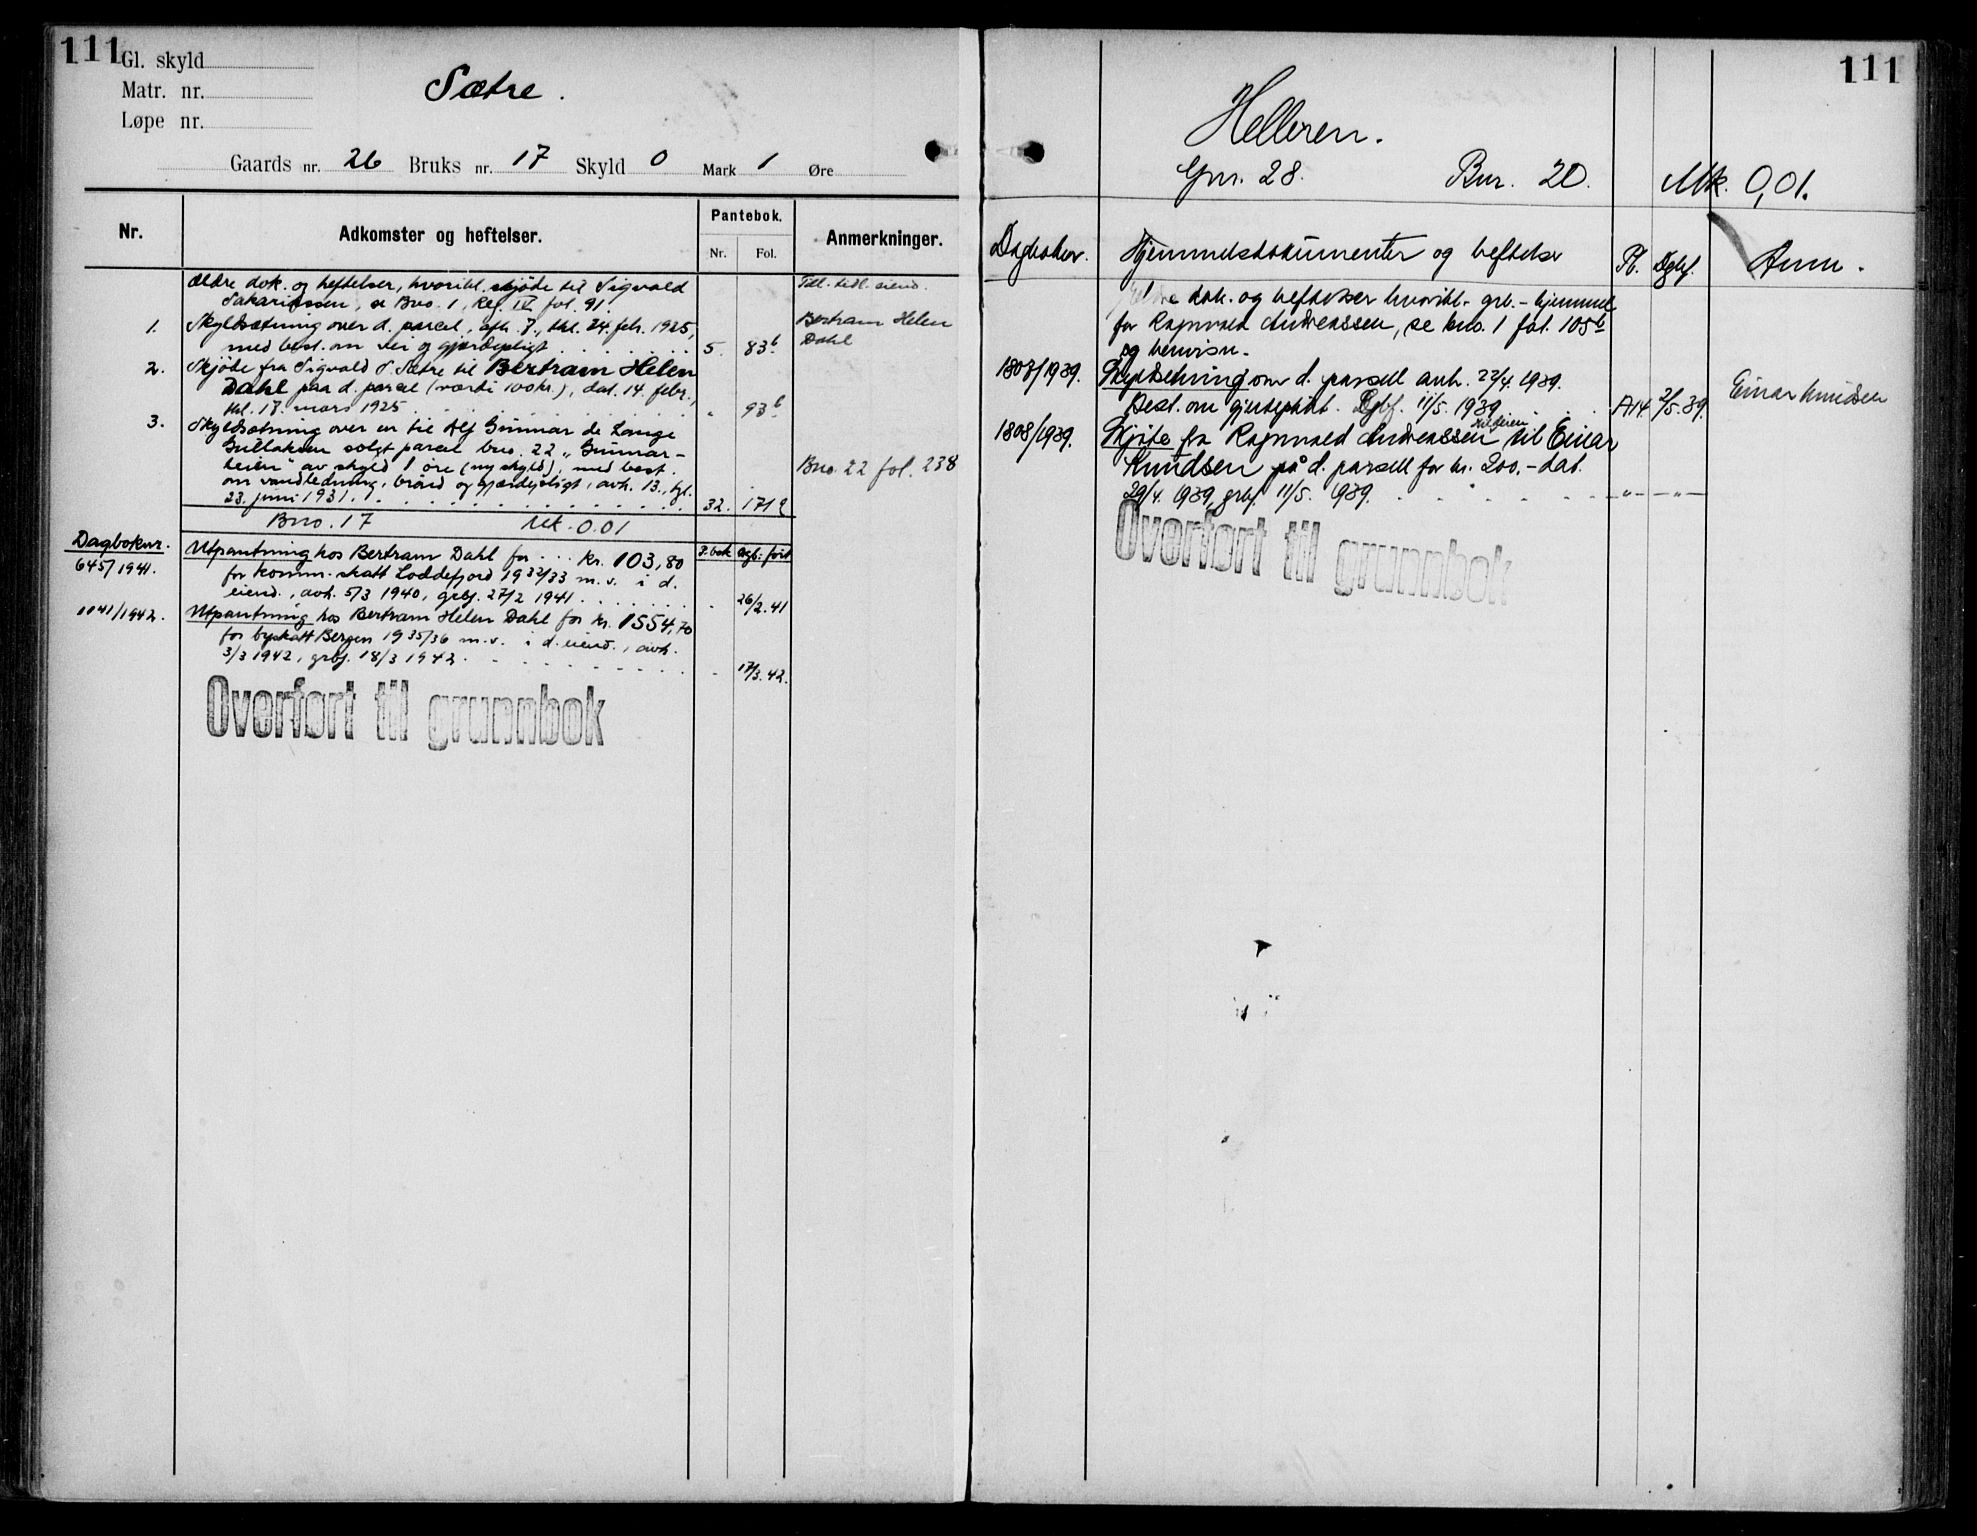 111
Gl. skyld
Matr. nr.
Løpe nr.
Sætre.
Gaards nr. 26 Bruks nr. 17 Skyld 0 Mark 1 Øre
Nr.
Adkomster og heftelser.
Pantebok.
Nr. Fol.
Anmerkninger.
Ældre dok. og heftelser, hvoribl. skjøde til Sigvald
Sakariassen, se Bno. 1, Reg. IV fol. 91.
Till. tidl. eiend.
1. Skyldsætning over d. parcel, afh. 7., thl. 24. febr. 1925,
med best. om vei og gjærdepligt 5. 83b
Bertram Helen
Dahl
2. Skjøde fra Sigvald S. Sætre til Bertram Helen
Dahl paa d. parcel (værdi 100 kr.), dat. 14. febr.,
thl. 17. mars 1925 " 93b
3. Skyldsætning over en til Alf Gunnar de Lange
Gullaksen solgt parcel bno. 22 "Gunnar-
heien" av skyld 1 øre (ny skyld), med best.
om vandledning, brønd og gjærdepligt, avh. 13., tgl.
23. juni 1931. 32. 171
Bno. 22 fol. 238
Bno. 17 Mk. 0.01
Dagboknr. P.bok dgb: ført
645/1941. Utpantning hos Bertram Dahl for kr. 103,80
for komm. skatt Loddefjord 1932/33 m.v. i d.
eiend., avh. 5/3 1940, grbf. 27/2 1941 - 26/2.41
1041/1942. Utpantning hos Bertram Helen Dahl for kr. 1554,70
for byskatt Bergen 1935/36 m.v. i d. eiend., avh.
3/3 1942, grbf. 18/3 1942. - 17/3.42.
Overført til grunnbok
111
Helleren.
Gnr. 28. Bnr. 20. Mk. 0,01.
Dagboknr. Hjemmelsdokumenter og heftelser Pb. Dgbf. Anm.
Eldre dok. og heftelser hvoribl. grb.-hjemmel
for Ragnvald Andreassen, se bno. 1 fol. 105b
og henvisn.
1807/1939. Skyldsetning over d. parsell avh. 22/4. 1939.
Best. om gjerdeplikt. Dgbf. 11/5. 1939 A14 2/5.39.
Einar Knudsen
1808/1939. Skjøte fra Ragnvald Andreassen til Einar
Knudsen på d. parsell for kr. 200.- dat.
29/4. 1939, grbf. 11/5. 1939. -"- -"-
Overført til grunnbok